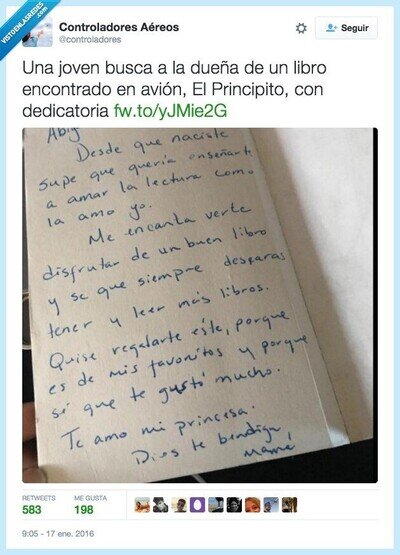 VISTOENLASREDES.COM
Controladores Aéreos
@controladores
Seguir
Una joven busca a la dueña de un libro
encontrado en avión, El Principito, con
dedicatoria fw.to/yJMie2G
Aby
Desde que naciste
supe que quería enseñarte
a amar la lectura como
la amo yo.
Me encanta verte
disfrutar de un buen libro
y se que siempre desearas
tener y leer más libros.
Quise regalarte éste, porque
es de mis favoritos y porque
sé que te gustó mucho.
Te amo mi princesa.
Dios te bendiga
mamé
RETWEETS
ME GUSTA
583
198
9:05 - 17 ene. 2016